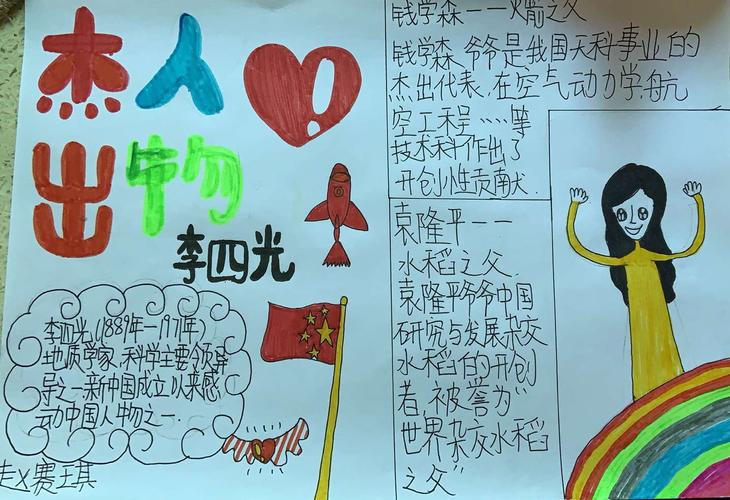 杰人
出物
李四光
李四光(1889年一1971年)
地质学家,科学主要领导
导之一新中国成立以来感
动中国人物之一.
赛琪
钱学森一一火箭之父
钱学森爷爷是我国天科事业的
杰出代表.在空气动力学.航
空工程……等
技术科作出了
开创性贡献.
袁隆平一一
水稻之父.
袁隆平爷爷中国
研究与发展杂交
水稻的开创
者,被誉为"
世界杂交水稻
之父"